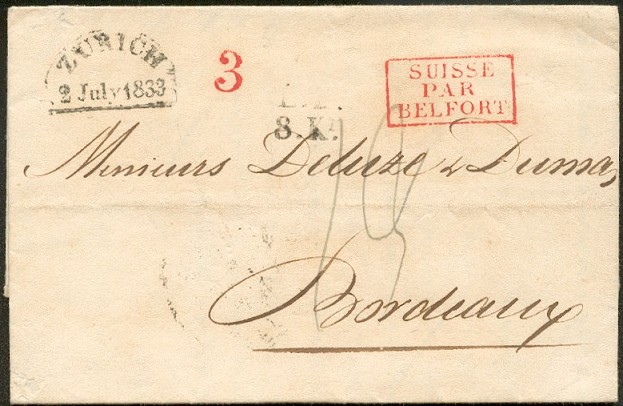 ZURICH
2 July 1833
3
8.Kr.
SUISSE
PAR
BELFORT
Messieurs Deluze & Dumas,
Bordeaux